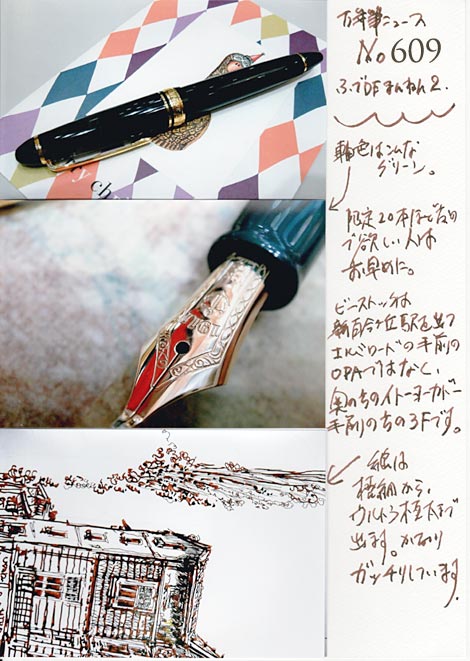 万年筆ニュース
No 609
ふでDEまんねん2.
軸色はこんな
グリーン。
限定20本ほどなの
で欲しい人は
お早めに。
ビーンストックは
新百合ヶ丘駅を出て
エルロードの手前の
OPAではなく、
奥のちのイトーヨーカドー
手前のちの3Fです。
線は
極細から、
ウルトラ極太まで
出ます。かなり
ガッチリしています.
y chri